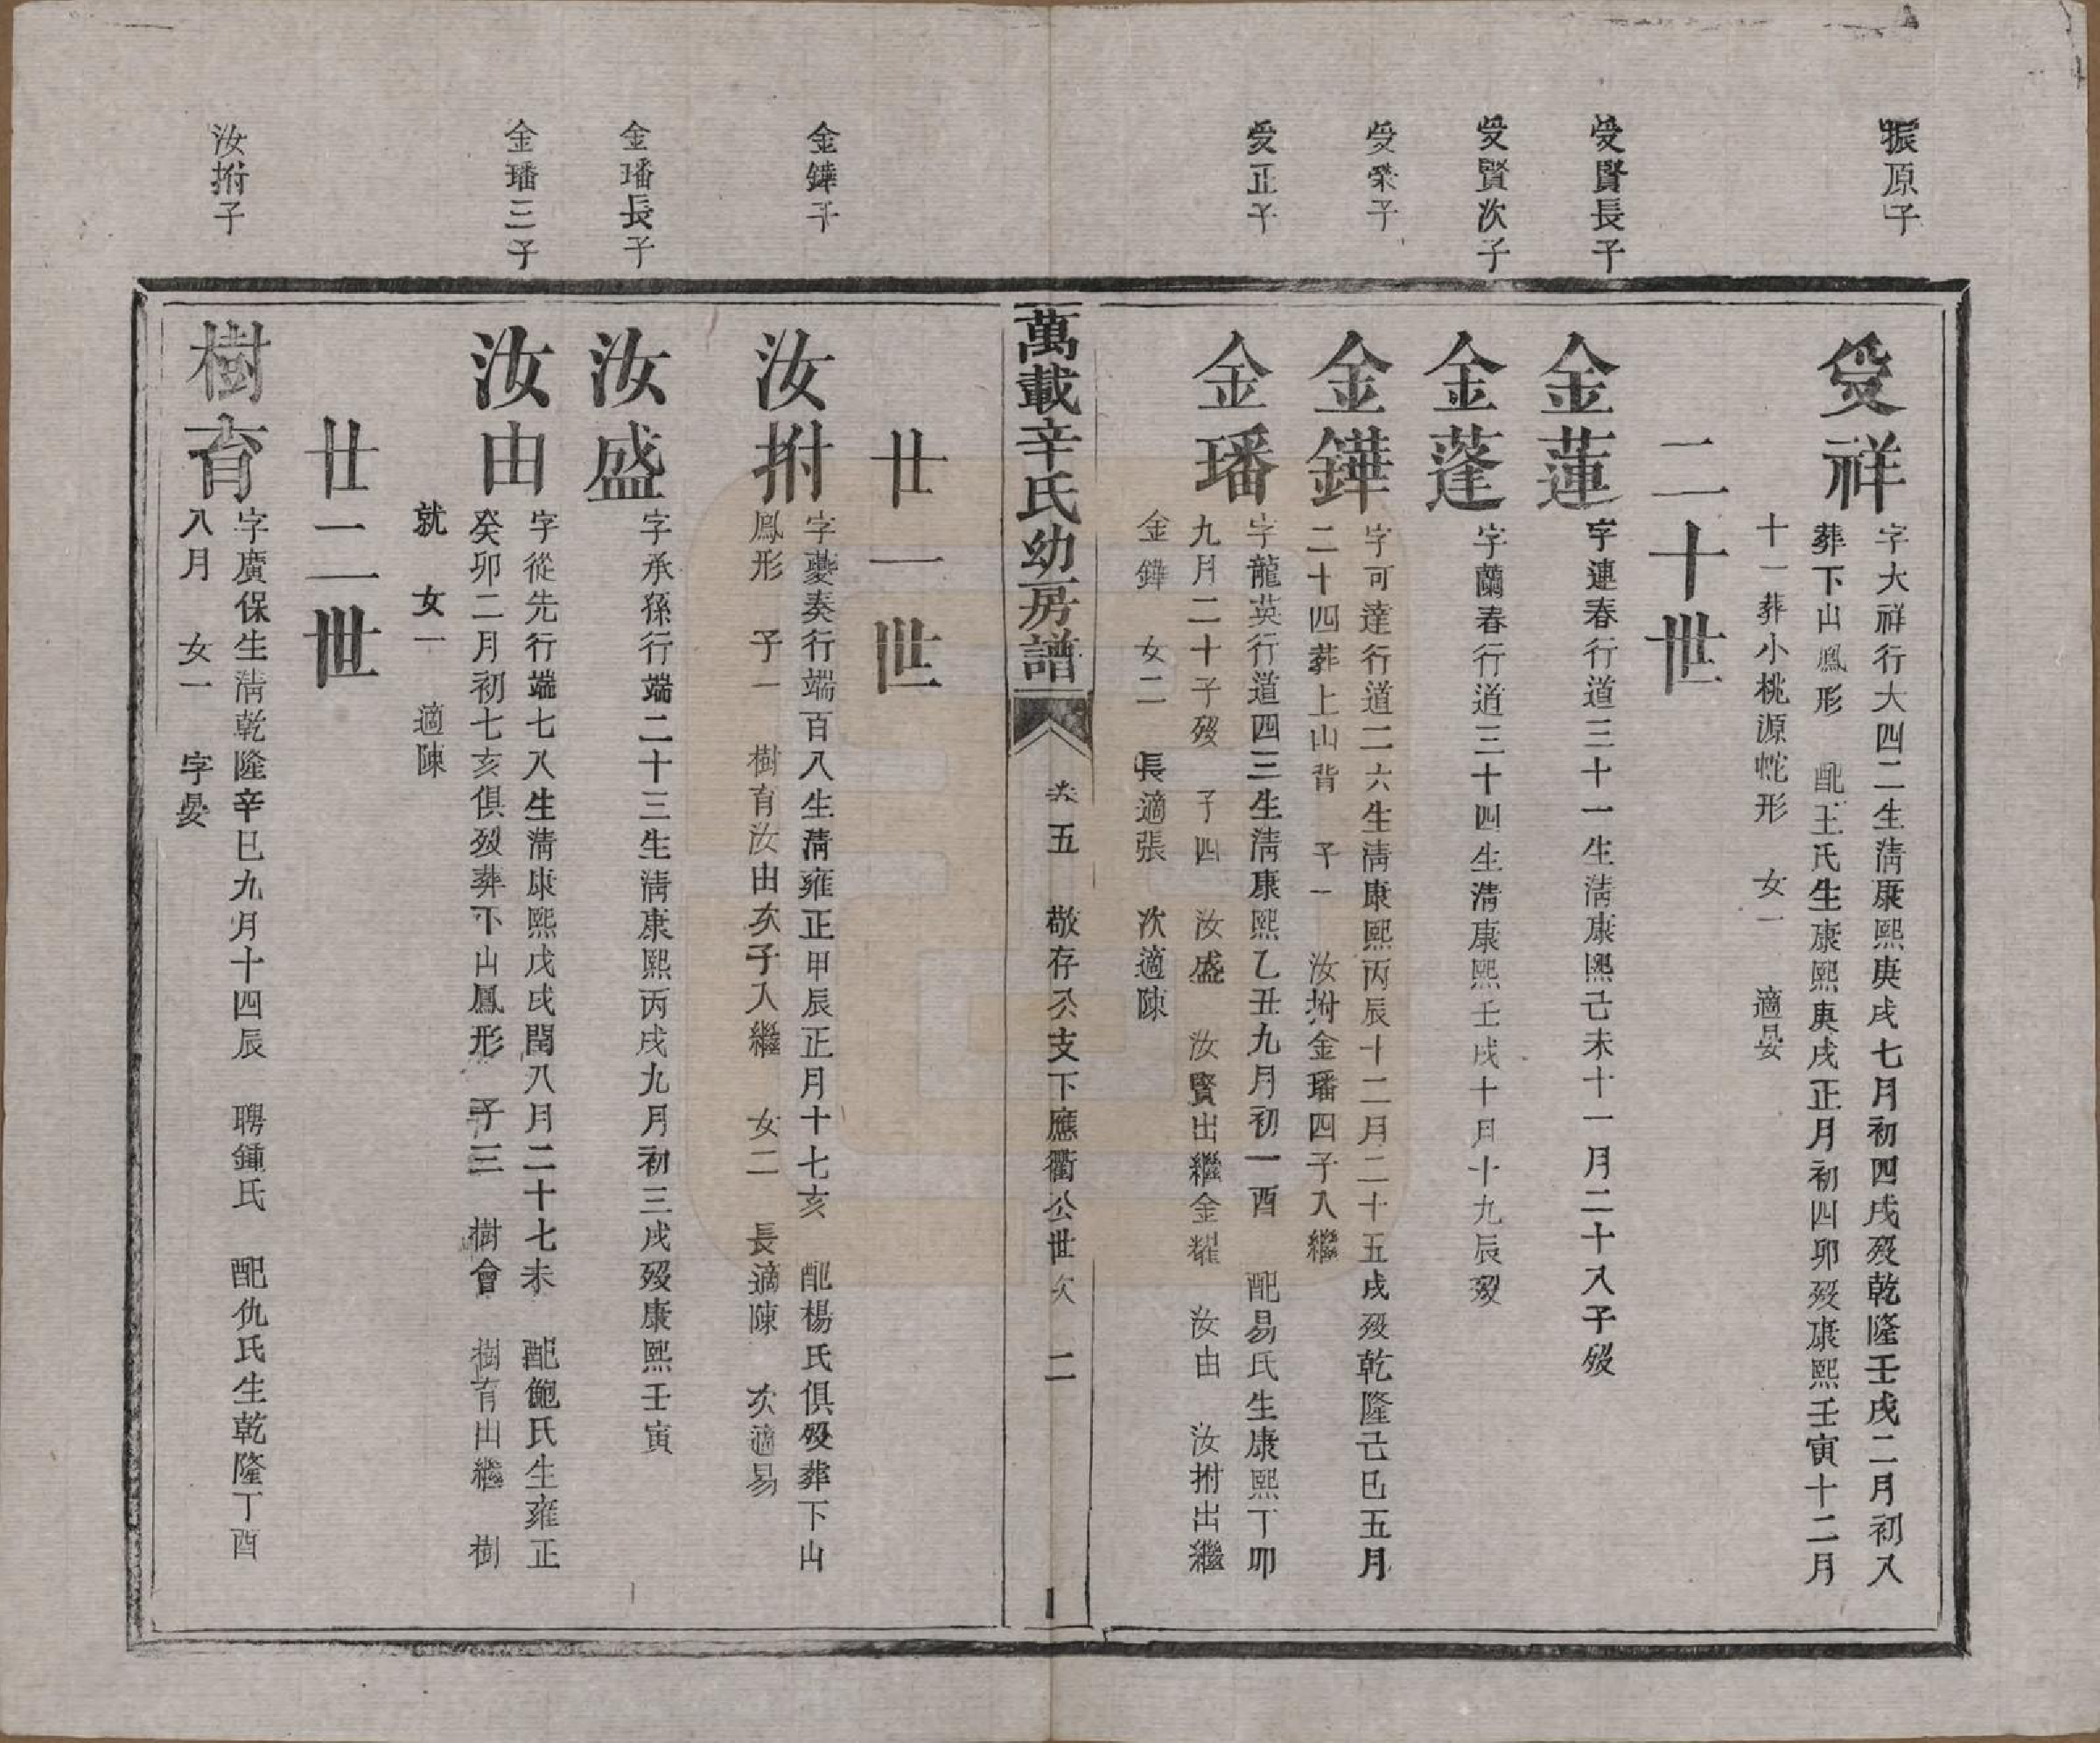 振原子
受祥
字大祥行大四二生清康熙庚戌七月初四戌歿乾隆壬戌二月初八
葬下山鳳形　配王氏生康熙庚戌正月初四卯歿康熙壬寅十二月
十一葬小桃源蛇形　女一　適晏
二十世
受賢長子
金蓮
字連春行道三十一生清康熙己未十一月二十八子歿
受賢次子
金蓬
字蘭春行道三十四生清康熙壬戌十月十九辰歿
受榮子
金鏵
字可達行道二六生清康熙丙辰十二月二十五戌歿乾隆己巳五月
二十四葬上山背　子一　汝拊金璠四子入繼
受正子
金璠
字龍英行道四三生清康熙乙丑九月初一酉　配易氏生康熙丁卯
九月二十子歿　子四　汝盛　汝賢出繼金耀　汝由　汝拊出繼
金鏵　女二　長適張　次適陳
萬載辛氏幼房譜　卷五　敬存公支下應衢公世次　二
廿一世
金鏵子
汝拊
字夔奏行端百八生清雍正甲辰正月十七亥　配楊氏俱歿葬下山
鳳形　子一　樹育汝由次子入繼　女二　長適陳　次適易
金璠長子
汝盛
字承孫行端二十三生清康熙丙戌九月初三戌歿康熙壬寅
金璠三子
汝由
字從先行端七八生清康熙戊戌閏八月二十七未　配鮑氏生雍正
癸卯二月初七亥俱歿葬下山鳳形　子三　樹會　樹育出繼　樹
就　女一　適陳
廿二世
汝拊子
樹育
字廣保生清乾隆辛巳九月十四辰　聘鍾氏　配仇氏生乾隆丁酉
八月　女一　字晏